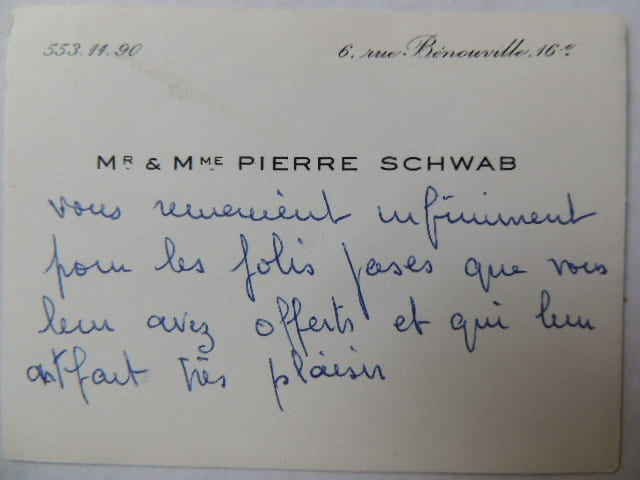 553.11.90 6. rue Bénouville. 16e.
MR. & MME. PIERRE SCHWAB
vous remercient infiniment
pour les jolis vases que vous
leur avez offerts et qui leur
ont fait très plaisir